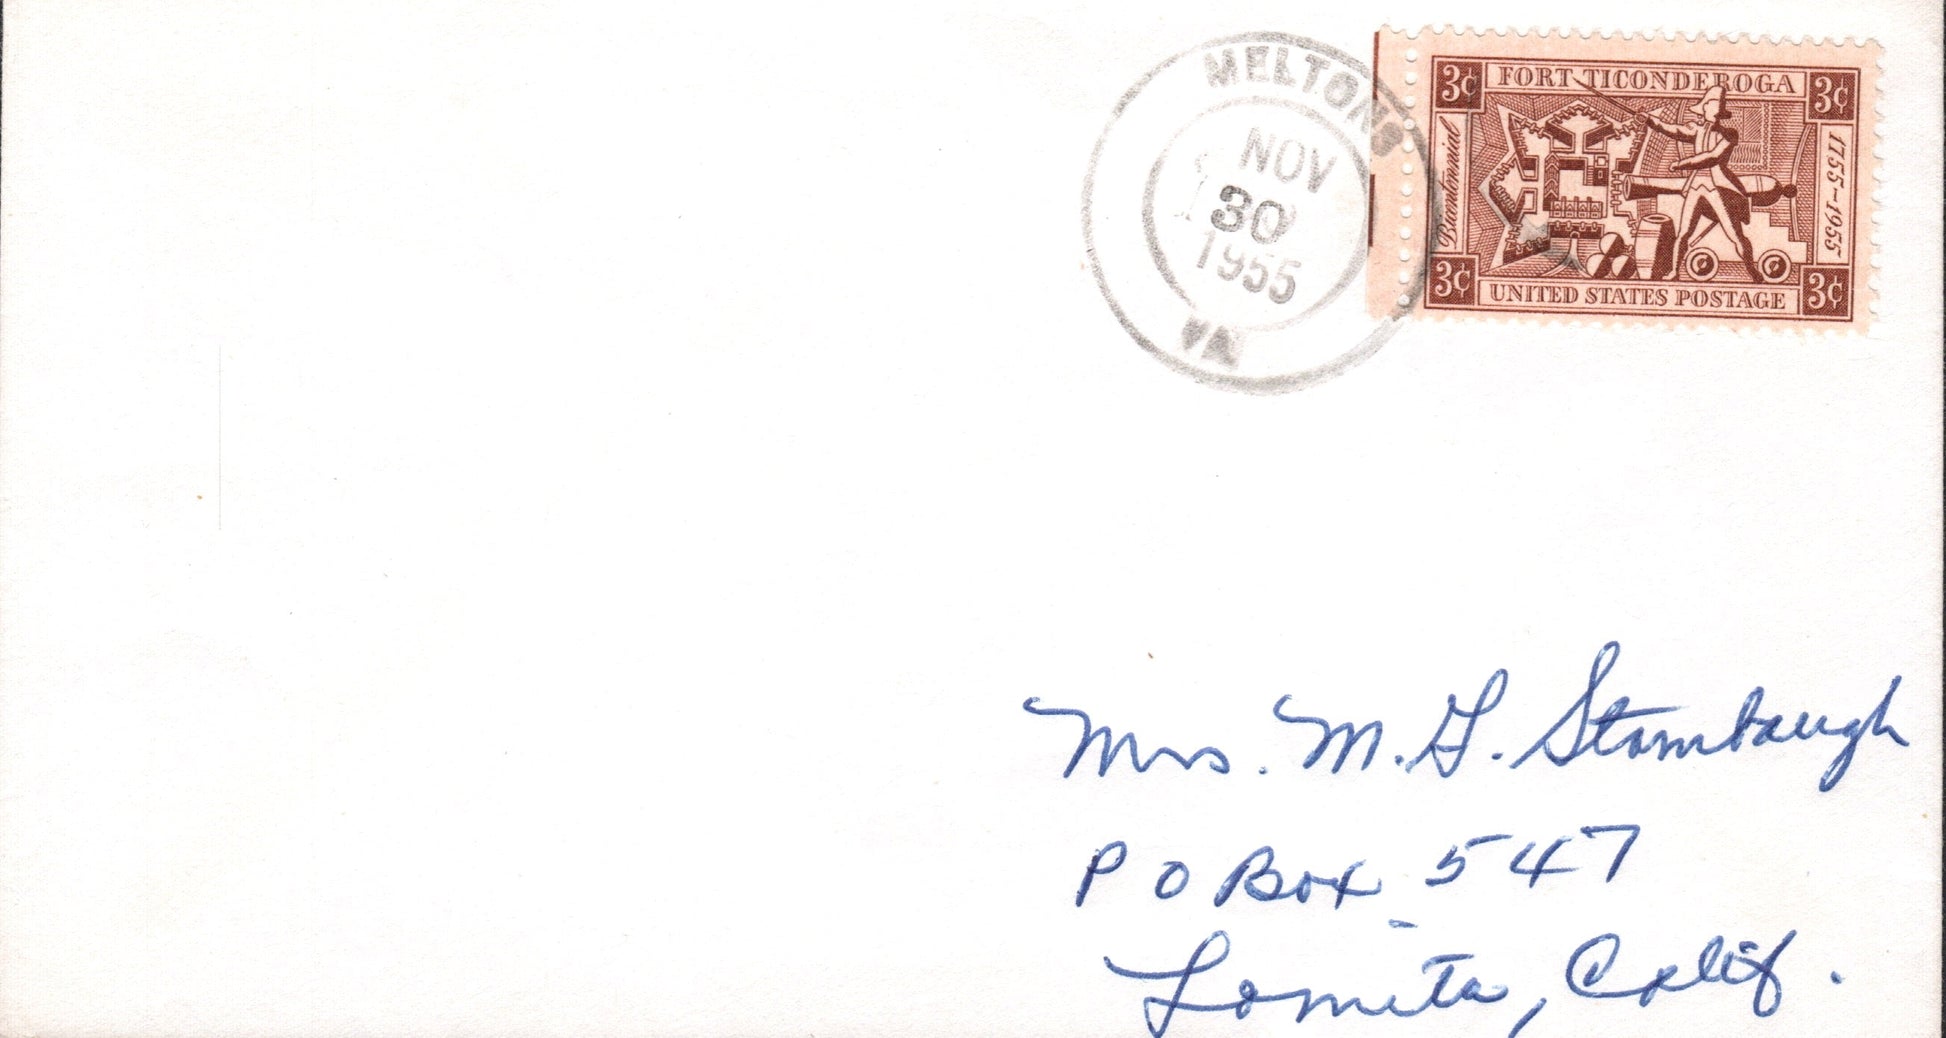 MELTONS
NOV
30
1955
VA
3¢ FORT TICONDEROGA 3¢
Bicentennial
1755-1955
3¢ UNITED STATES POSTAGE 3¢
Mrs. M. G. Stambaugh
P O Box 547
Lomita, Calif.